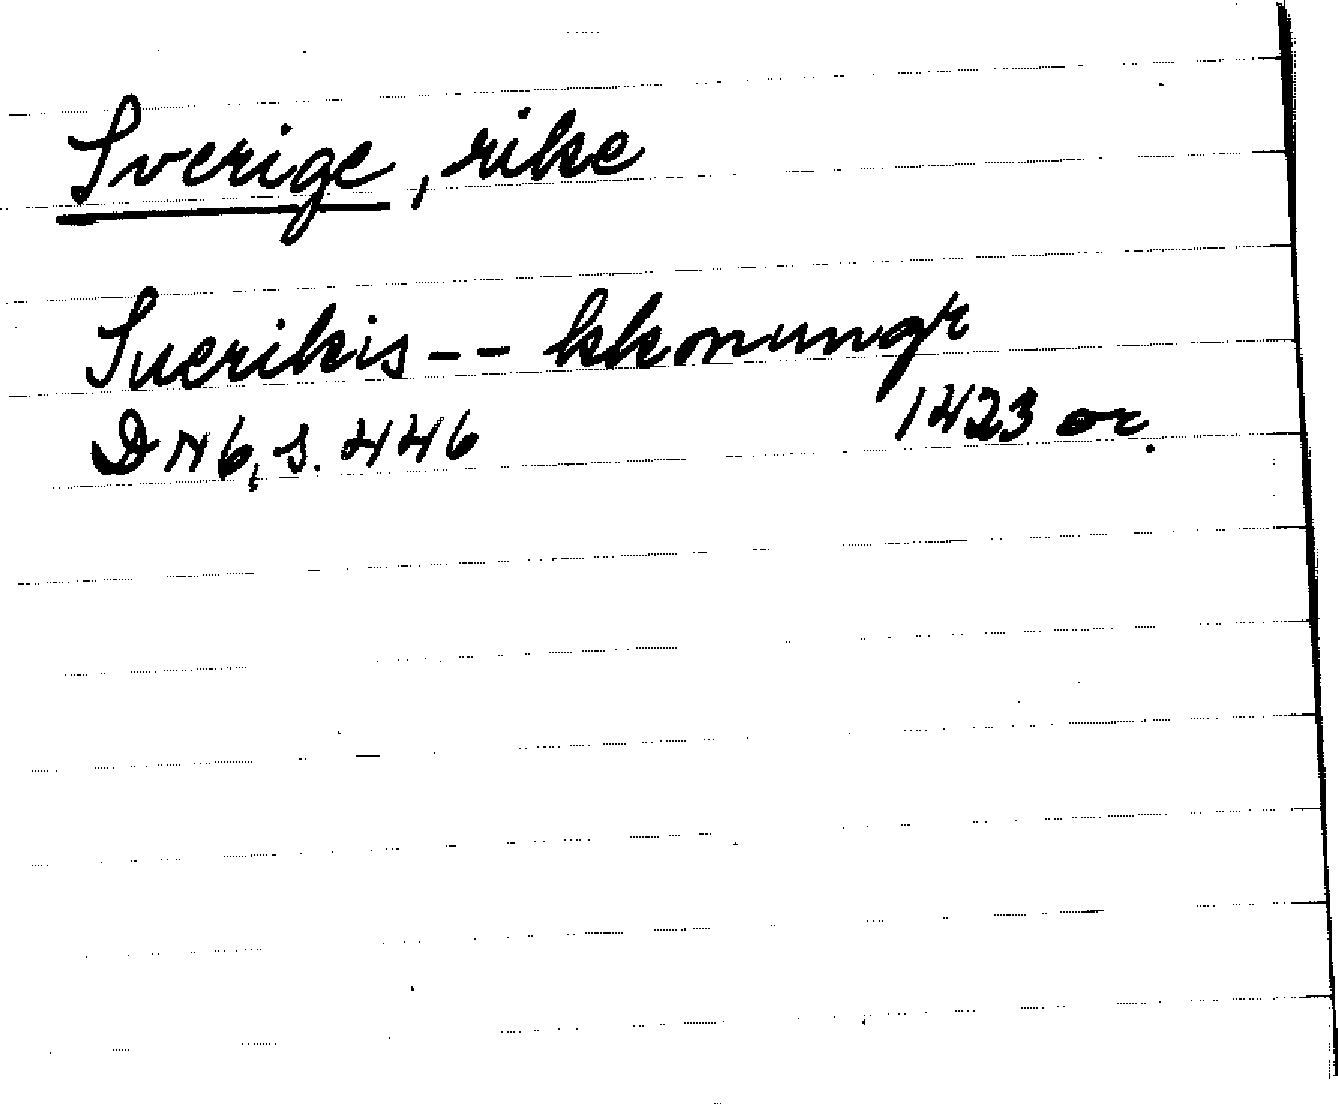 Sverige, rike
Suerikis -- kkonungr
1423 or.
DN6, s. 446